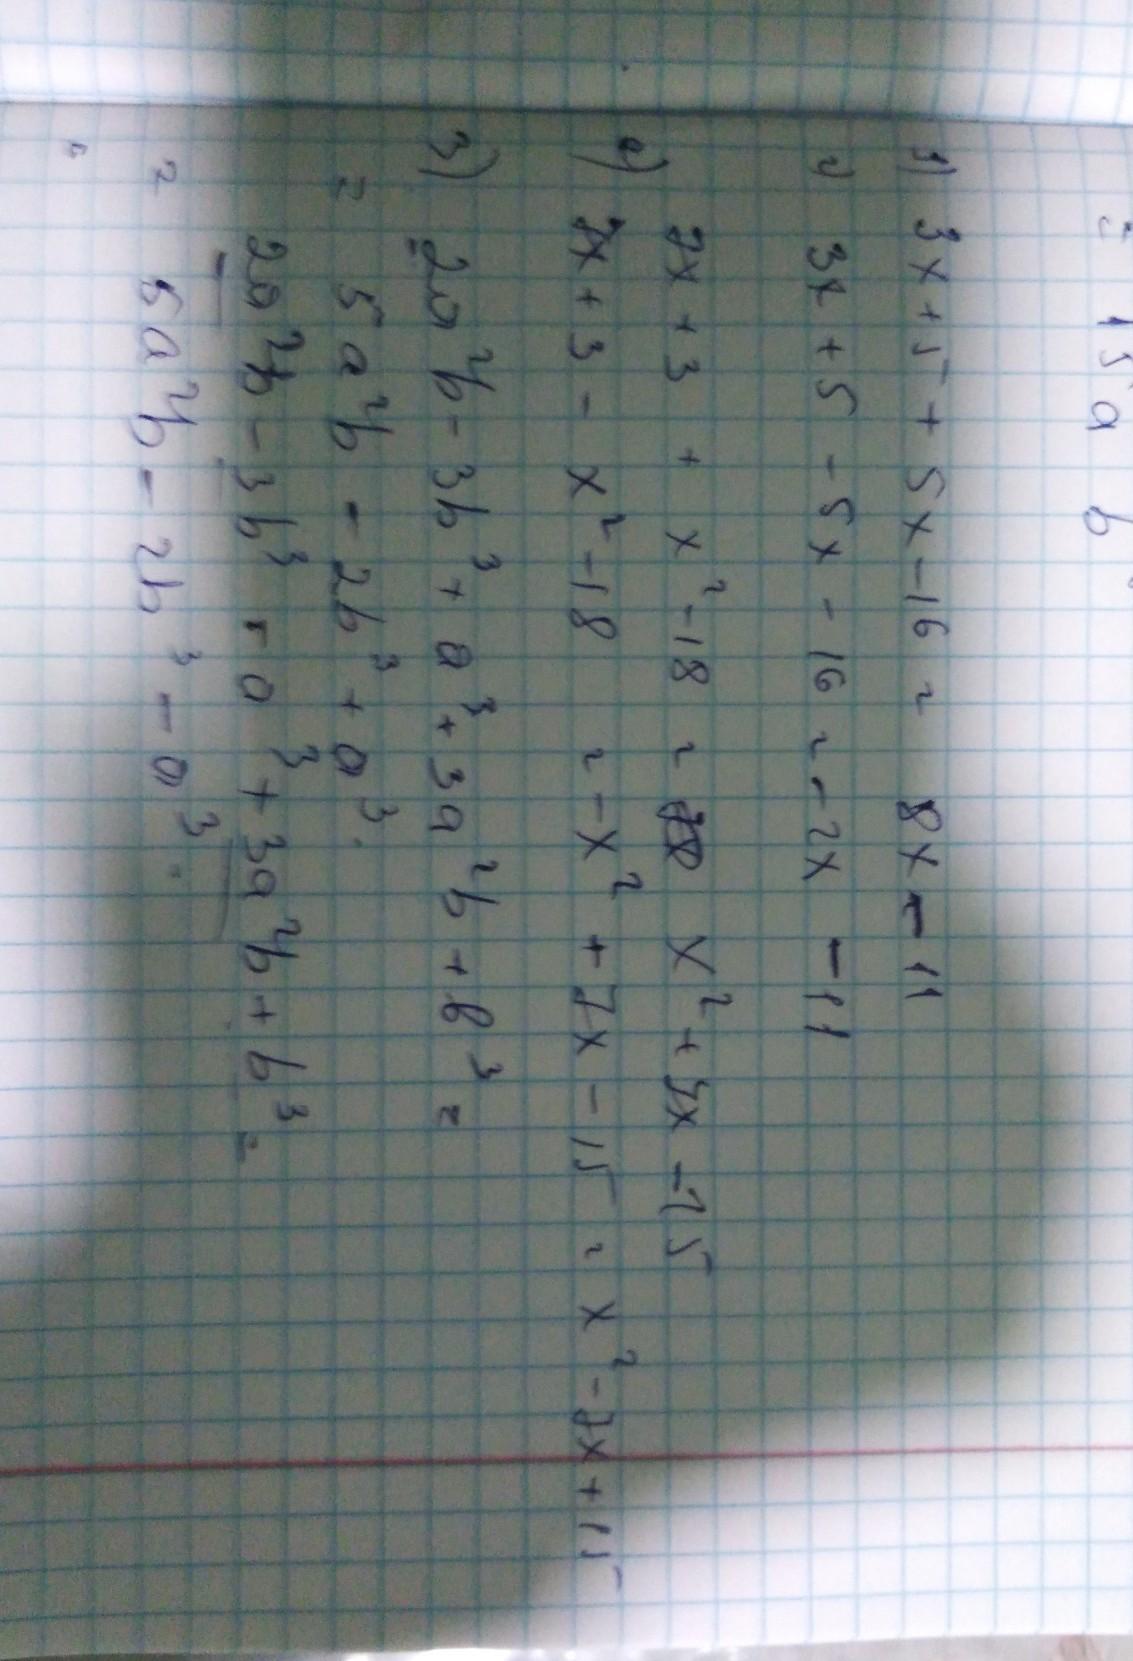 = 15a b
1) 3x+5+5x-16 = 8x-11
2) 3x+5-5x-16 = -2x-11
2) 7x+3 + x²-18 = x²+7x-15
7x+3- x²-18 = -x²+7x-15 = x²-7x+15
3) 2a²b-3b³+a³+3a²b+b³ =
= 5a²b-2b³+a³.
2a²b-3b³-a³+3a²b+b³ =
= 5a²b-2b³-a³.